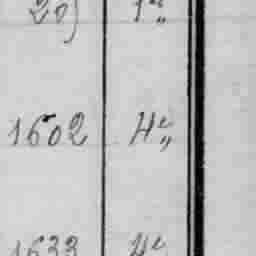 20) 1e„
1602 4e„
1633 4e